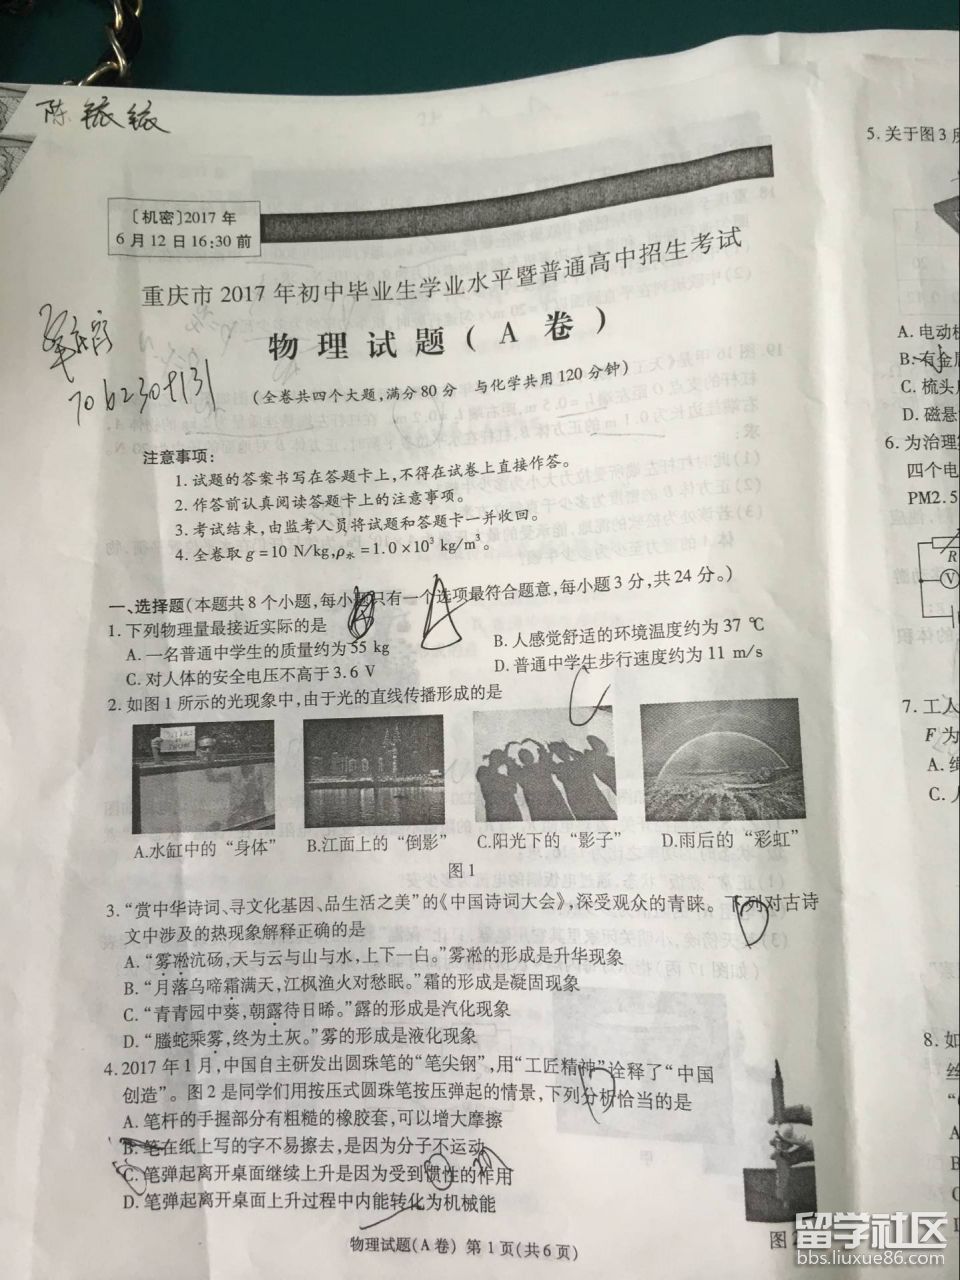 陈
〔机密〕2017年
6月12日16:30前
重庆市2017年初中毕业生学业水平暨普通高中招生考试
物理试题(A卷)
(全卷共四个大题,满分80分 与化学共用120分钟)
注意事项:
1.试题的答案书写在答题卡上,不得在试卷上直接作答。
2.作答前认真阅读答题卡上的注意事项。
3.考试结束,由监考人员将试题和答题卡一并收回。
4.全卷取g=10 N/kg,ρ水=1.0×10³ kg/m³。
一、选择题(本题共8个小题,每小题只有一个选项最符合题意,每小题3分,共24分。)
1.下列物理量最接近实际的是
A.一名普通中学生的质量约为55 kg
B.人感觉舒适的环境温度约为37 ℃
C.对人体的安全电压不高于3.6 V
D.普通中学生步行速度约为11 m/s
2.如图1所示的光现象中,由于光的直线传播形成的是
C
A.水缸中的“身体” B.江面上的“倒影” C.阳光下的“影子” D.雨后的“彩虹”
图1
3.“赏中华诗词、寻文化基因、品生活之美”的《中国诗词大会》,深受观众的青睐。下列对古诗
文中涉及的热现象解释正确的是
D
A.“雾凇沆砀,天与云与山与水,上下一白。”雾凇的形成是升华现象
B.“月落乌啼霜满天,江枫渔火对愁眠。”霜的形成是凝固现象
C.“青青园中葵,朝露待日晞。”露的形成是汽化现象
D.“螣蛇乘雾,终为土灰。”雾的形成是液化现象
4.2017年1月,中国自主研发出圆珠笔的“笔尖钢”,用“工匠精神”诠释了“中国
创造”。图2是同学们用按压式圆珠笔按压弹起的情景,下列分析恰当的是
A.笔杆的手握部分有粗糙的橡胶套,可以增大摩擦
B.笔在纸上写的字不易擦去,是因为分子不运动
C.笔弹起离开桌面继续上升是因为受到惯性的作用
D.笔弹起离开桌面上升过程中内能转化为机械能
图2
物理试题(A卷) 第1页(共6页)
5.关于图3
A.电动机
B.有金属
C.梳头
D.磁悬
6.为治理
四个电
PM2.5
V
7.工人
F为
A.绳
C.
8.如
留学社区
bbs.liuxue86.com